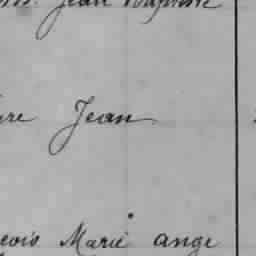 Jean Baptiste
Jean
Marie ange